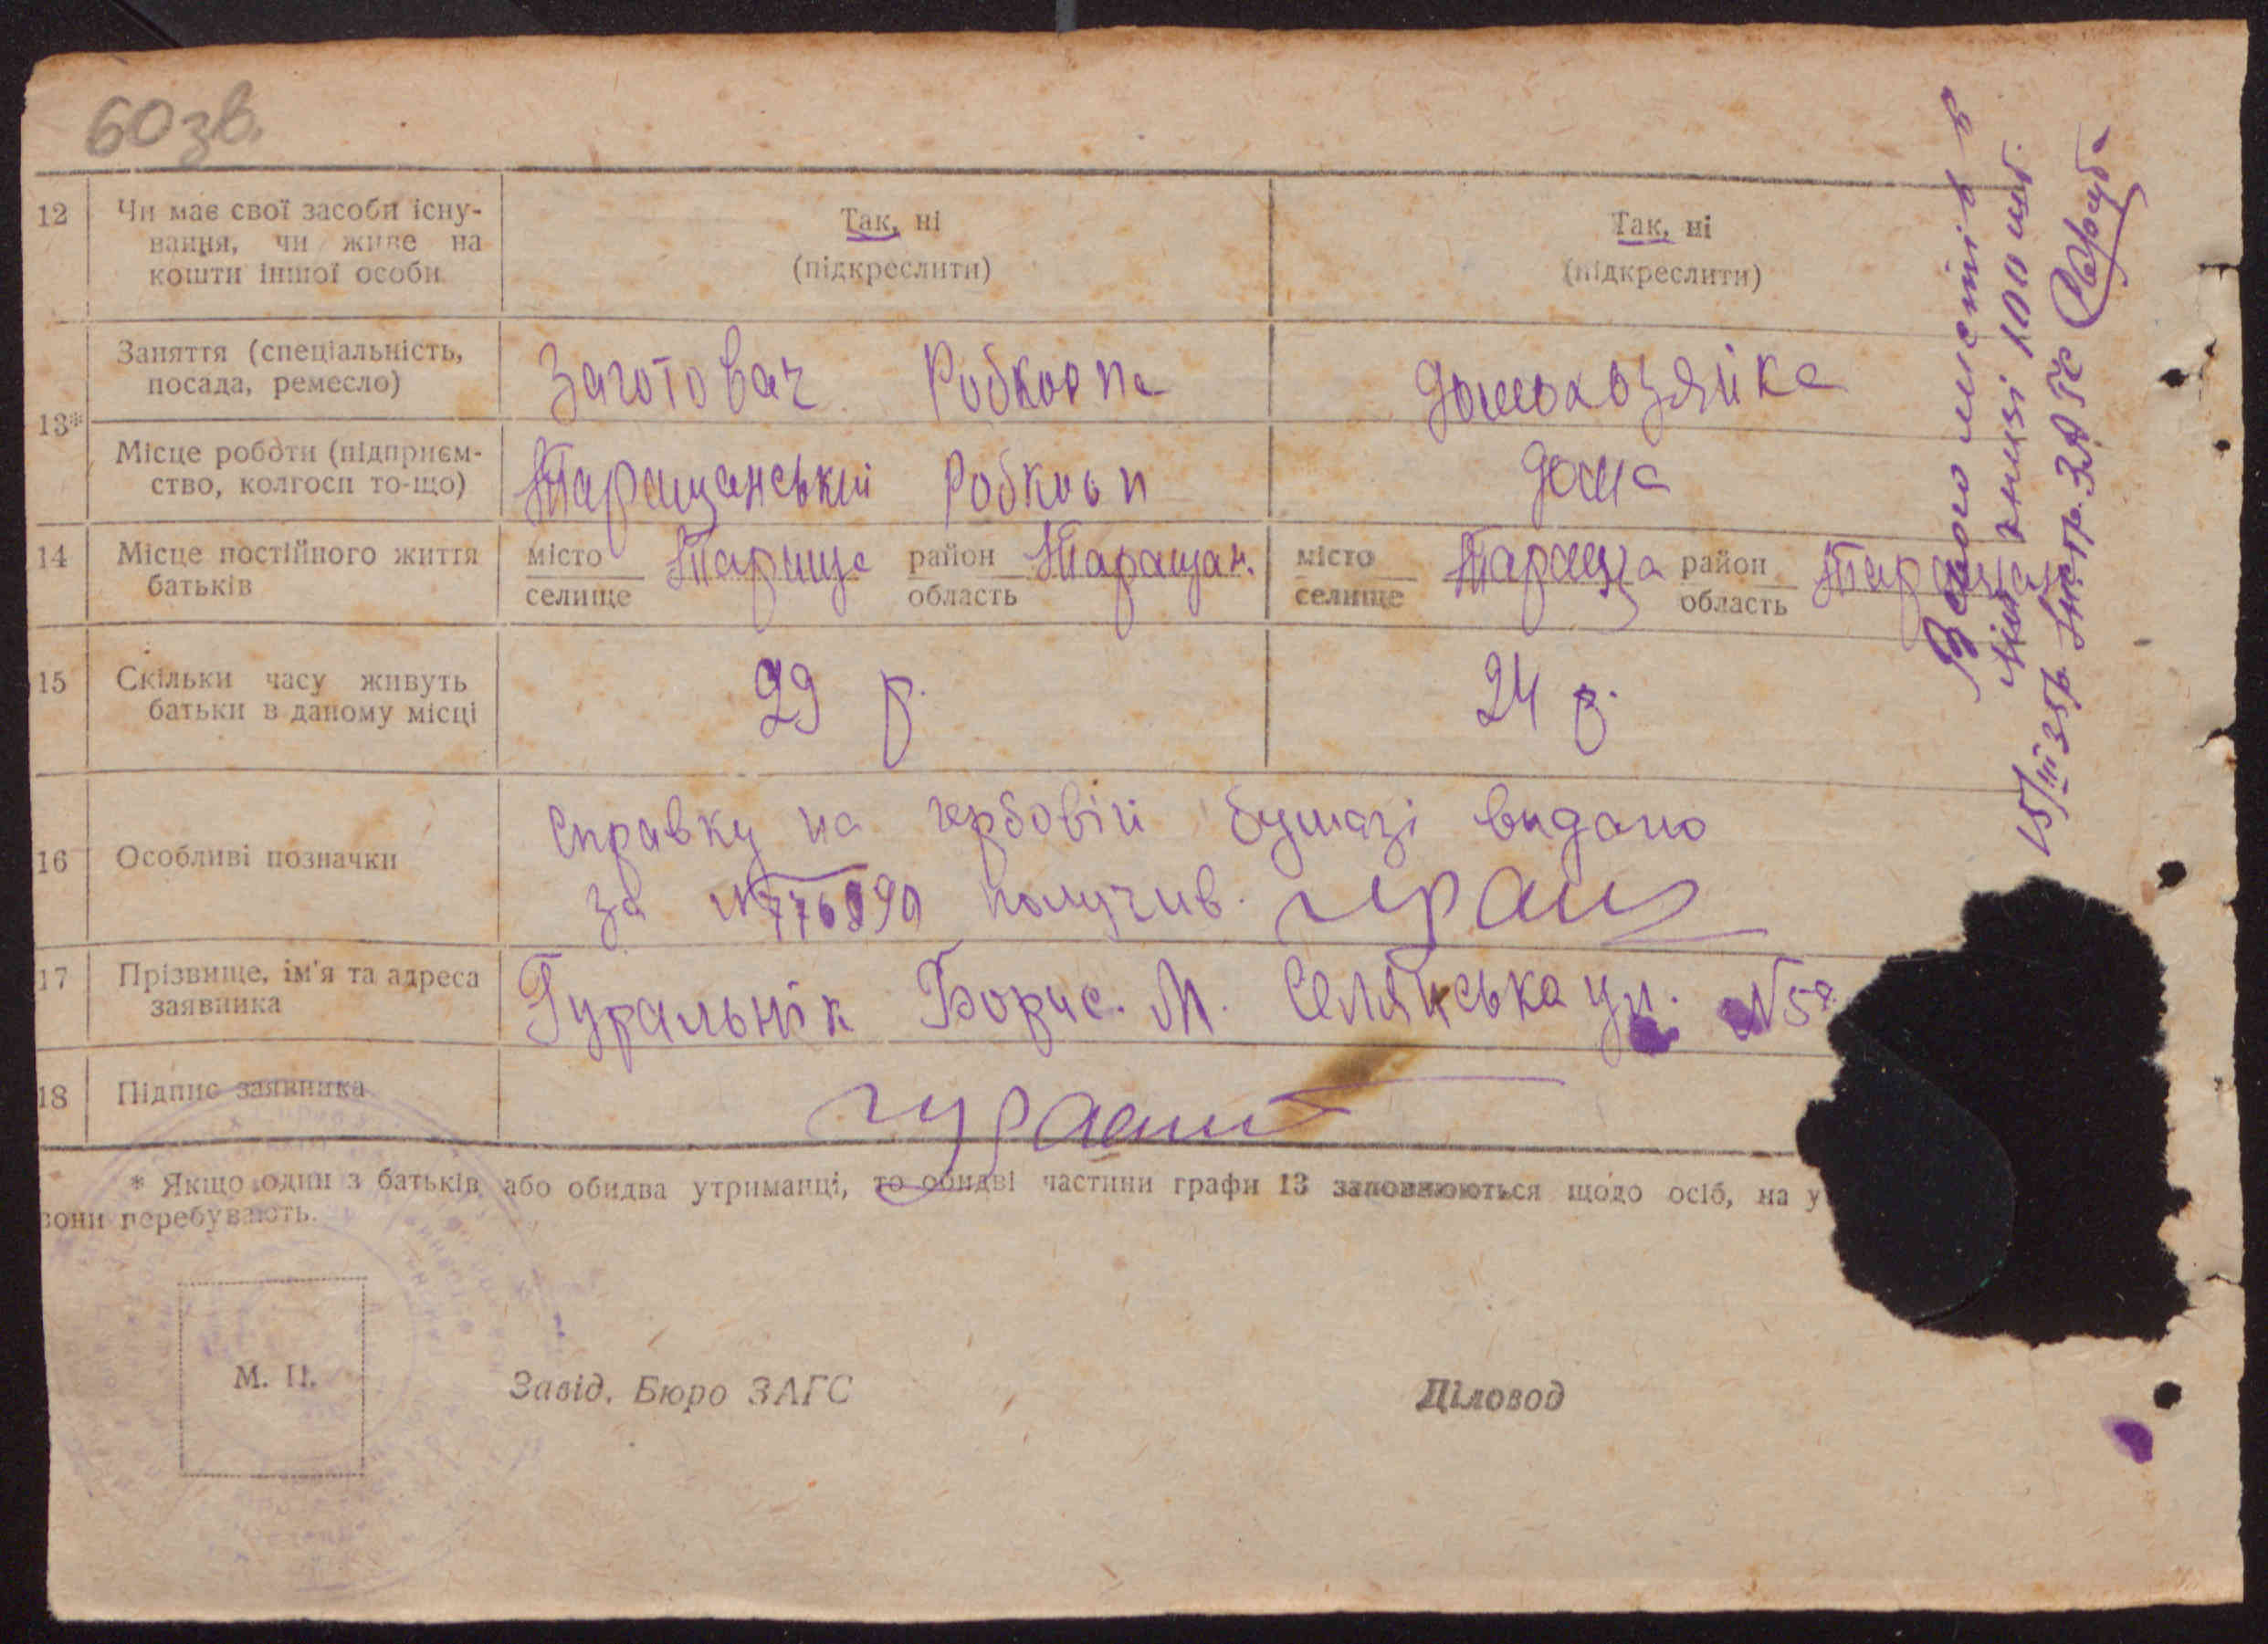 60 зв.
12 Чи має свої засоби існу-
вання, чи живе на
кошти іншої особи
Так, ні
(підкреслити)
Так, ні
(підкреслити)
13*
Заняття (спеціальність,
посада, ремесло)
Заготовач Робкопа
домохозяйка
Місце роботи (підприєм-
ство, колгосп то-що)
Таращанський Робкооп
дома
14 Місце постійного життя
батьків
місто
селище
Тараща
район
область
Таращан.
місто
селище
Тараща
район
область
15 Скільки часу живуть
батьки в даному місці
29 р.
24 р.
16 Особливі позначки
Справку на гербовій бумазі видано
за № получив.
17 Прізвище, ім'я та адреса
заявника
Гуральнік Борис. М. Селянська ул. №
18 Підпис заявника
* Якщо один з батьків або обидва утриманці, то обидві частини графи 13 заповнюються щодо осіб, на у
вони перебувають.
М. П.
Завід. Бюро ЗАГС
Діловод
Всього листів в
книзі 100 шт.
15/III 35р. Інстр. ЗАГС